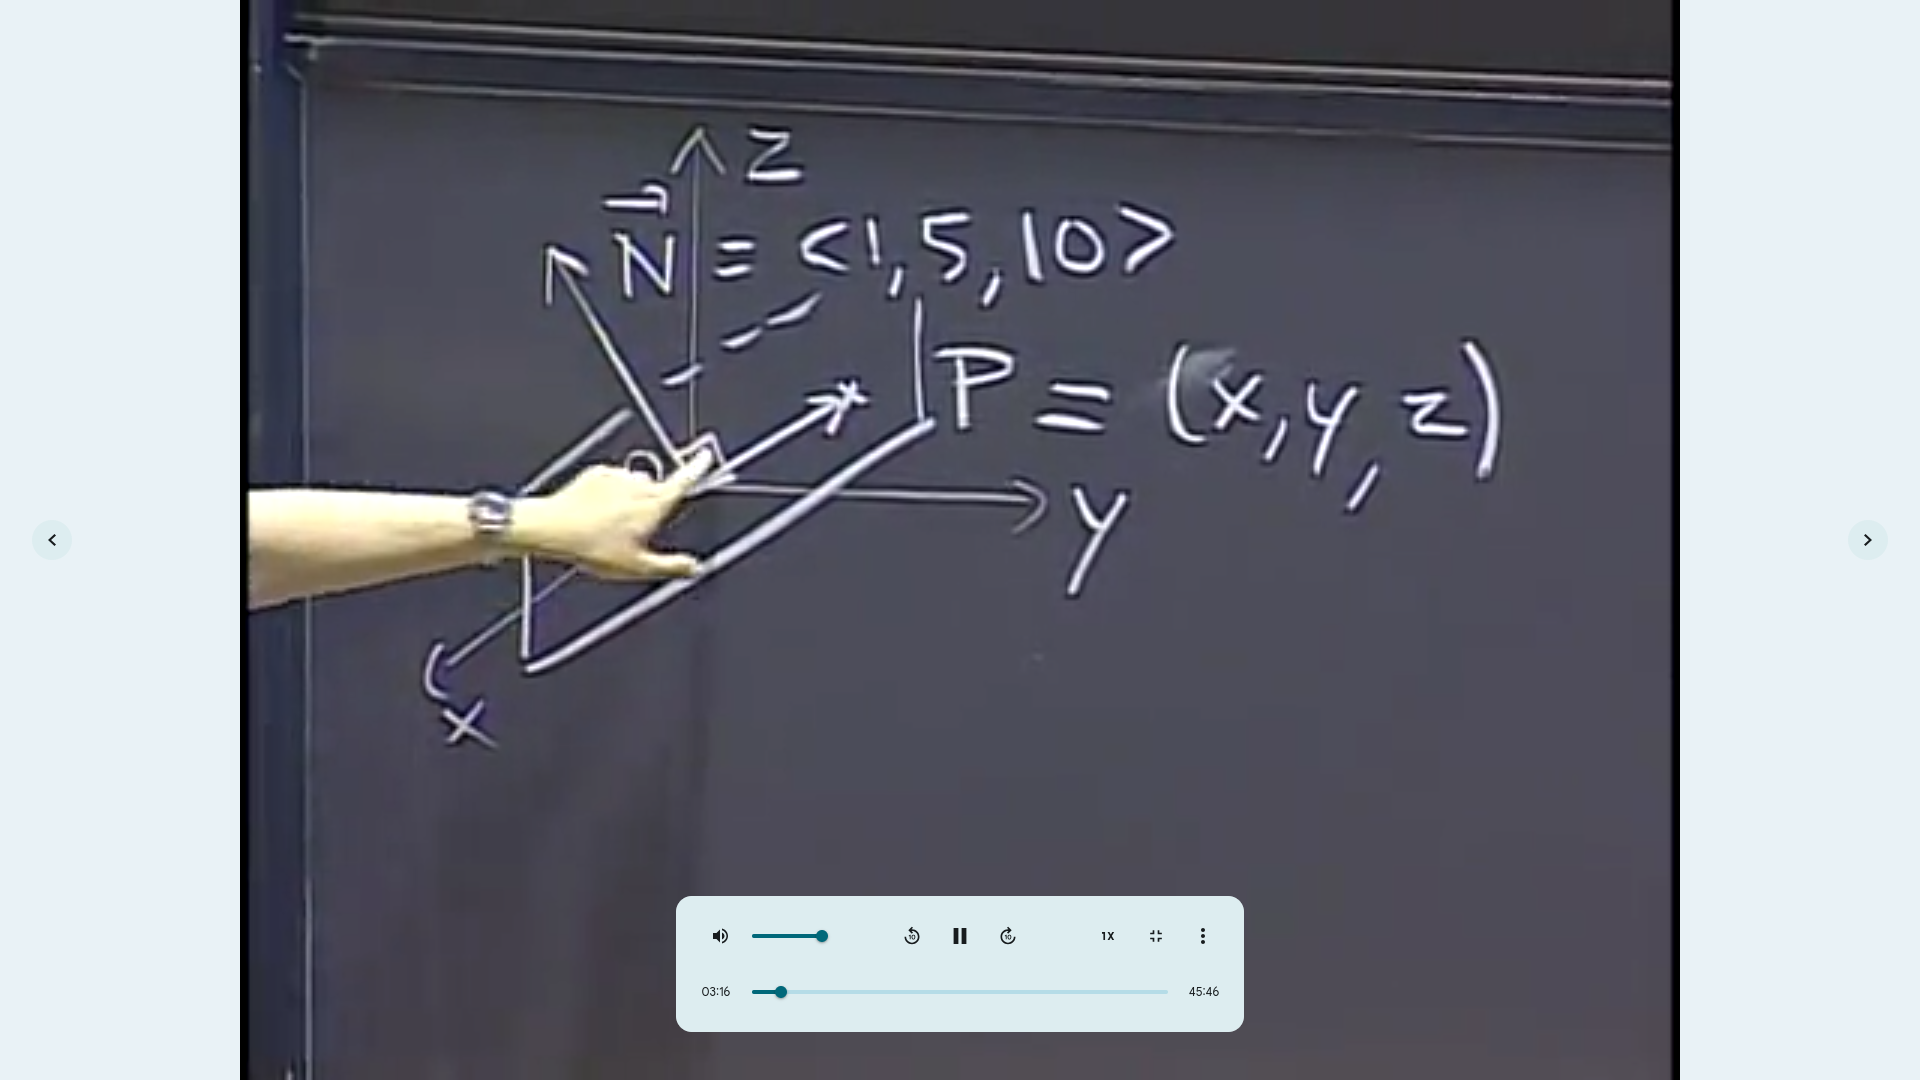 z
N = <1, 5, 10>
P = (x, y, z)
O
y
x
10
10
1X
03:16
45:46